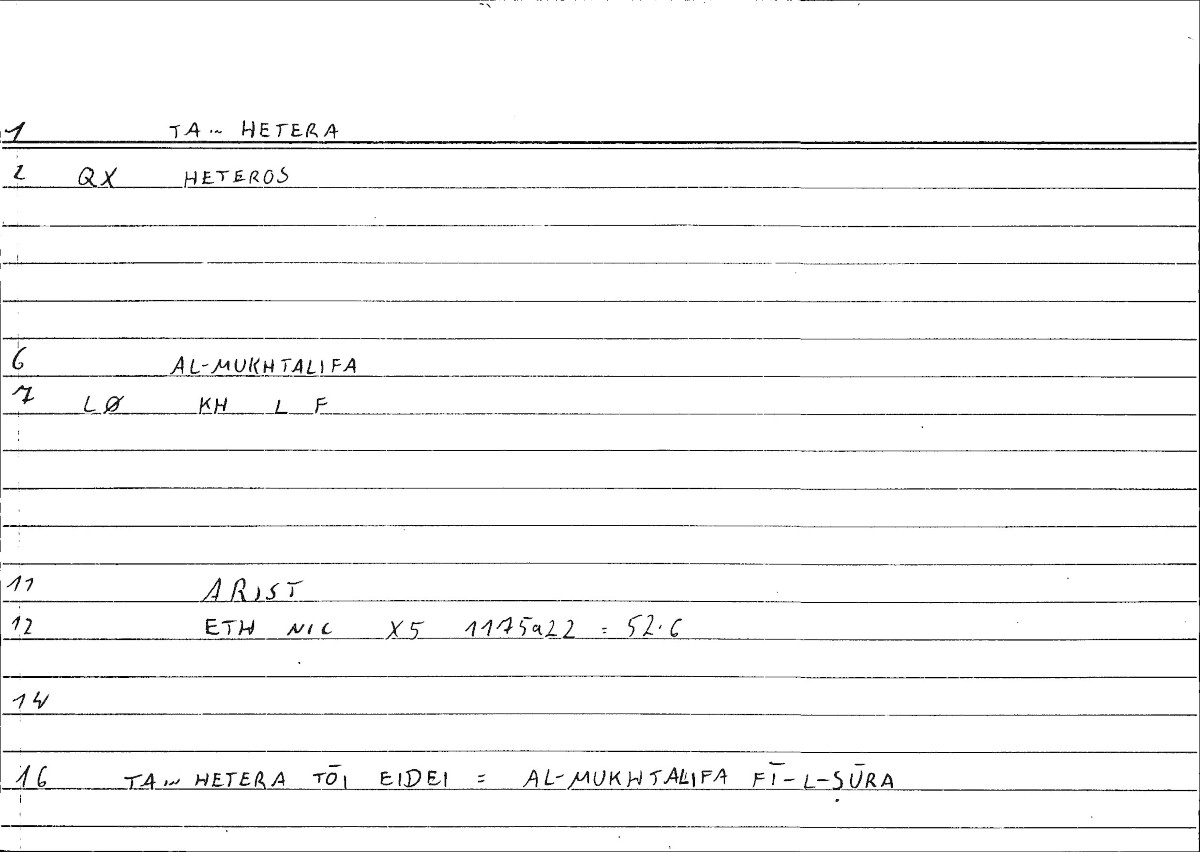 1 TA... HETERA
2 QX HETEROS
6 AL-MUKHTALIFA
7 LØ KH L F
11 ARIST
12 ETH NIC X5 1175a22 = 52.6
14
16 TA... HETERA TŌI EIDEI = AL-MUKHTALIFA FĪ-L-ṢŪRA